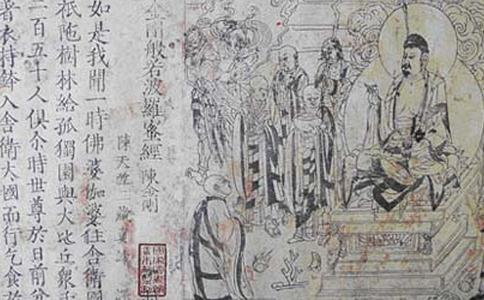 金剛般若波羅蜜經 陳金剛
陳天竺三藏真
如是我聞一時佛婆伽婆住舍衛國
祇陀樹林給孤獨園與大比丘衆千
二百五十人俱尒時世尊於日前分
著衣持鉢入舍衛大國而行乞食於